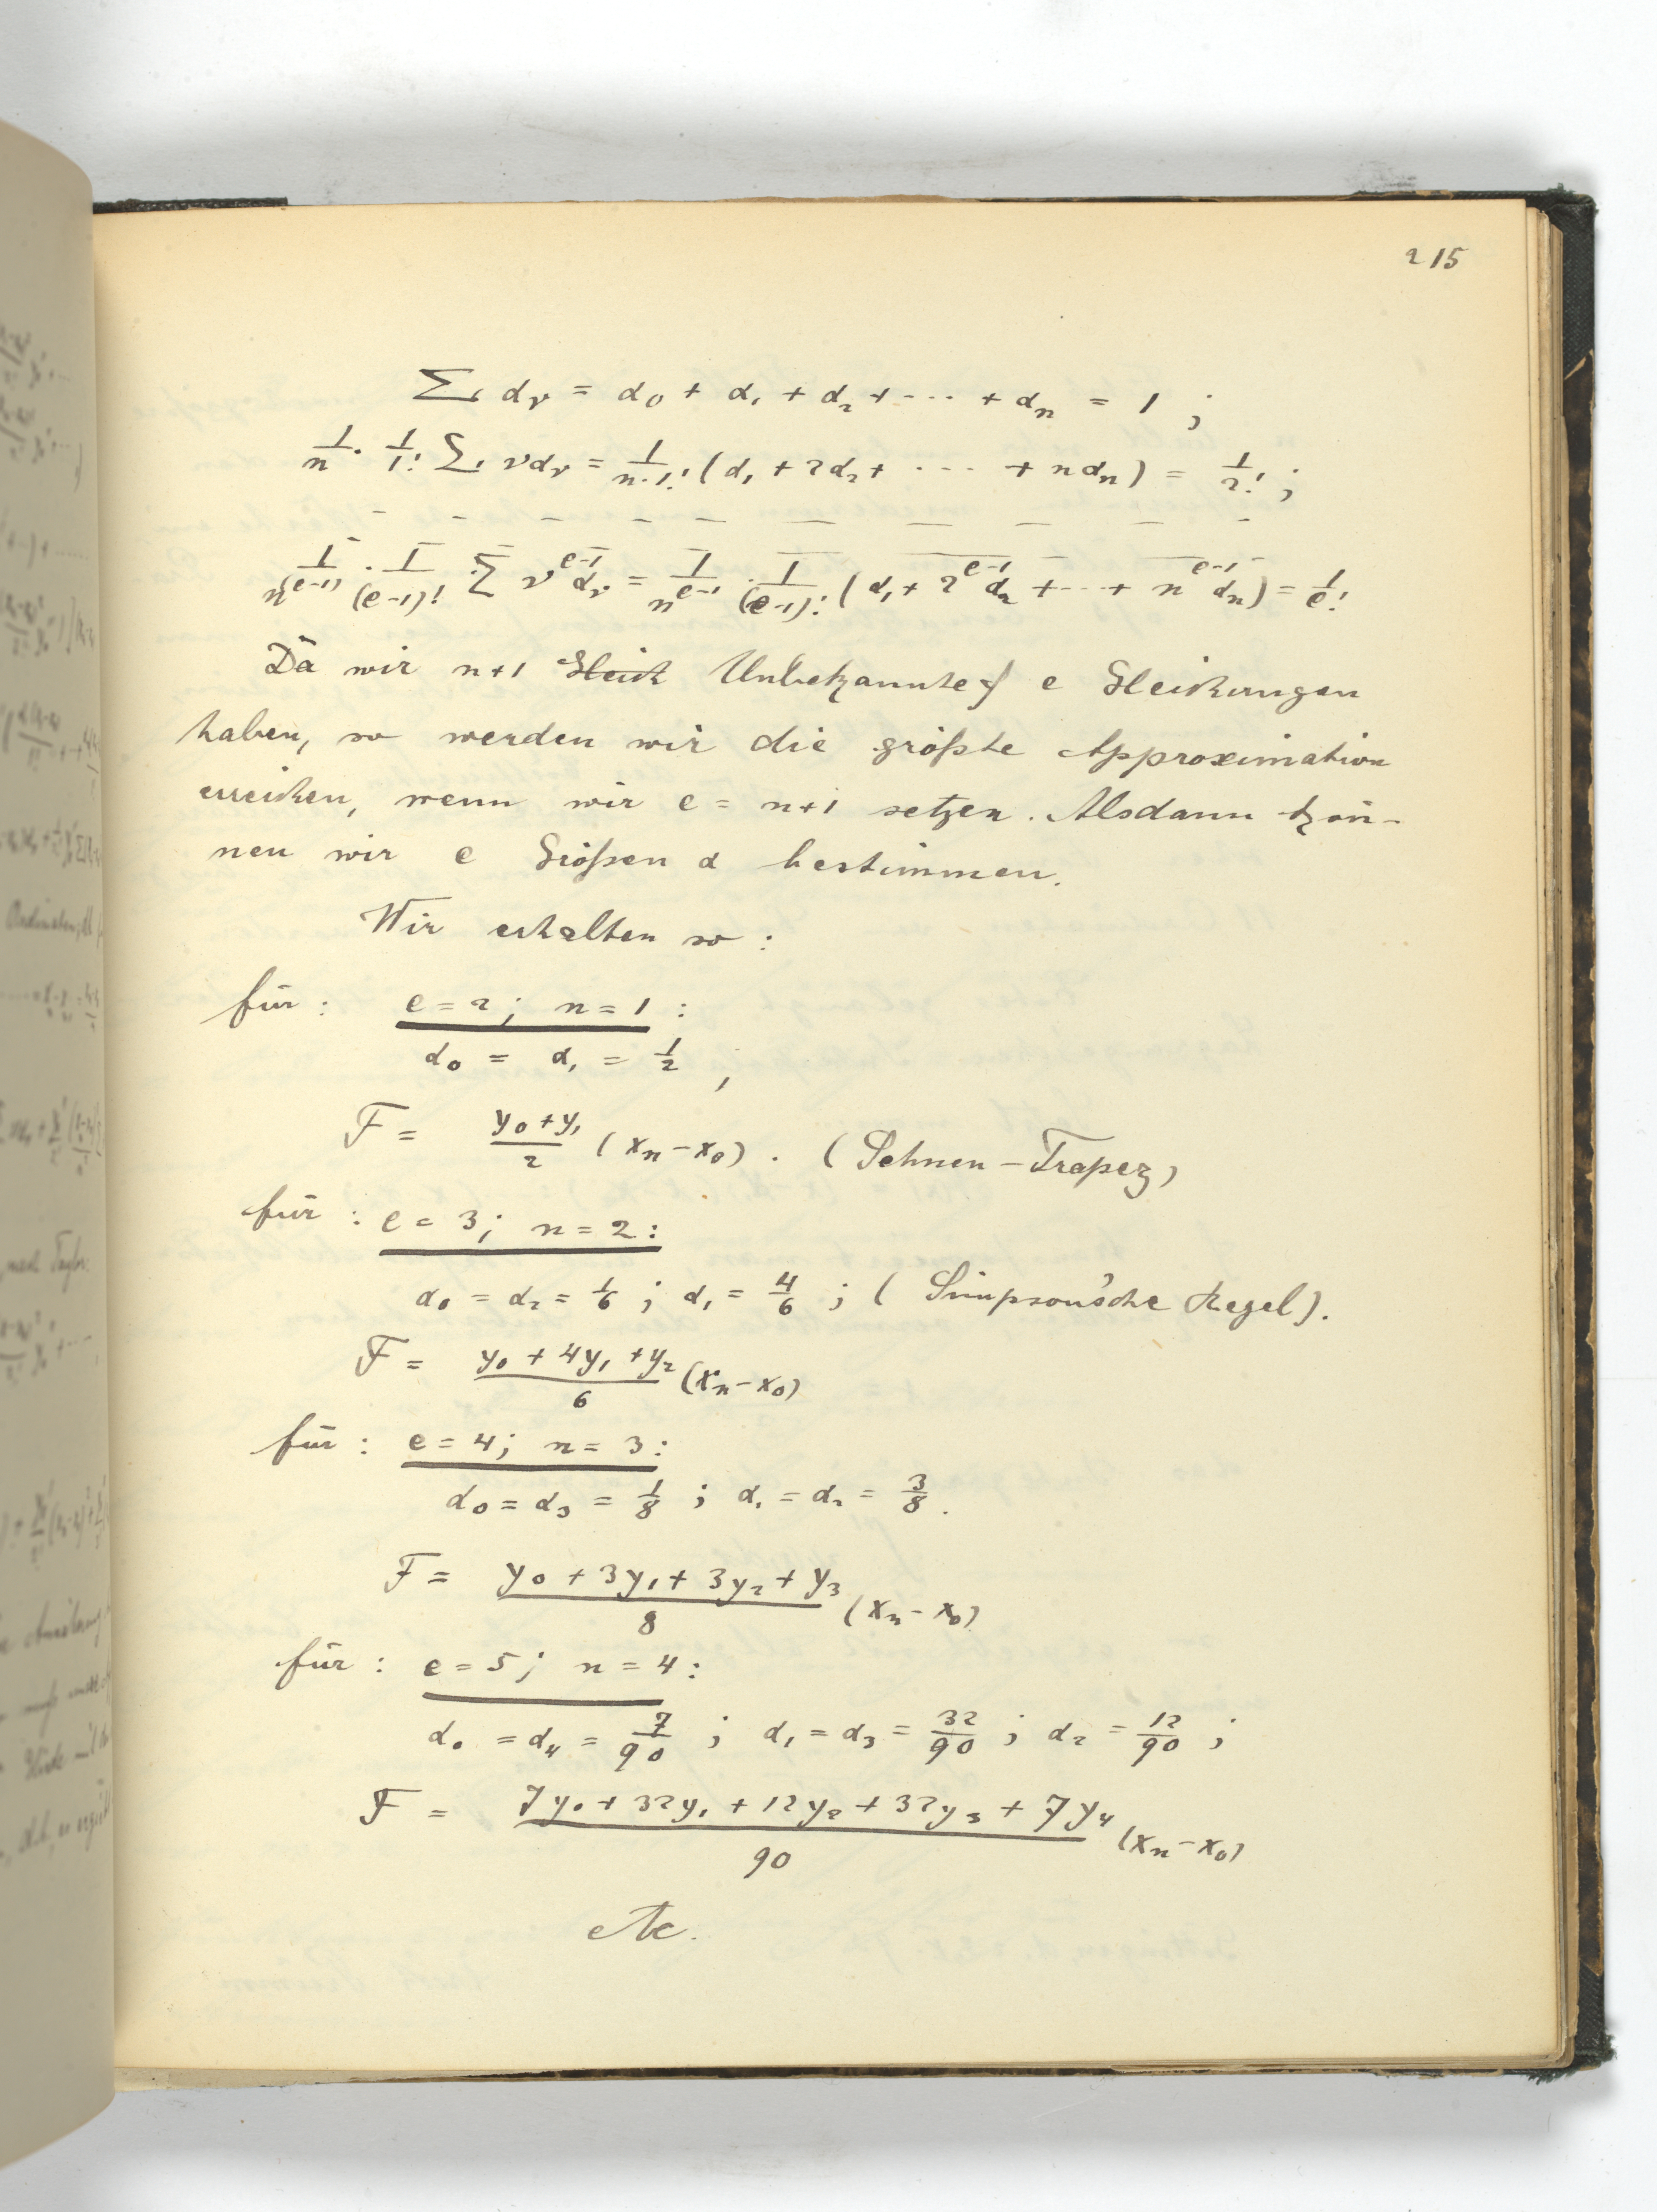 215
∑ α_ν = α_0 + α_1 + α_2 + ··· + α_n = 1 ;
1/n · 1/1! ∑ ν α_ν = 1/(n·1!) (α_1 + 2α_2 + ··· + n α_n) = 1/2! ;
1/n^(e-1) · 1/(e-1)! ∑ ν^(e-1) α_ν = 1/n^(e-1) · 1/(e-1)! (α_1 + 2^(e-1) α_2 + ··· + n^(e-1) α_n) = 1/e!
Da wir n+1 Gleich Unbekannte & e Gleichungen
haben, so werden wir die größte Approximation
erreichen, wenn wir e = n+1 setzen. Alsdann kön-
nen wir e Größen α bestimmen.
Wir erhalten so :
für : e = 2 ; n = 1 :
α_0 = α_1 = 1/2 ,
F = (y_0 + y_1)/2 (x_n - x_0) . (Sehnen-Trapez)
für : e = 3 ; n = 2 :
α_0 = α_2 = 1/6 ; α_1 = 4/6 ; (Simpson'sche Regel).
F = (y_0 + 4y_1 + y_2)/6 (x_n - x_0)
für : e = 4 ; n = 3 :
α_0 = α_3 = 1/8 ; α_1 = α_2 = 3/8 .
F = (y_0 + 3y_1 + 3y_2 + y_3)/8 (x_n - x_0)
für : e = 5 ; n = 4 :
α_0 = α_4 = 7/90 ; α_1 = α_3 = 32/90 ; α_2 = 12/90 ;
F = (7y_0 + 32y_1 + 12y_2 + 32y_3 + 7y_4)/90 (x_n - x_0)
etc.